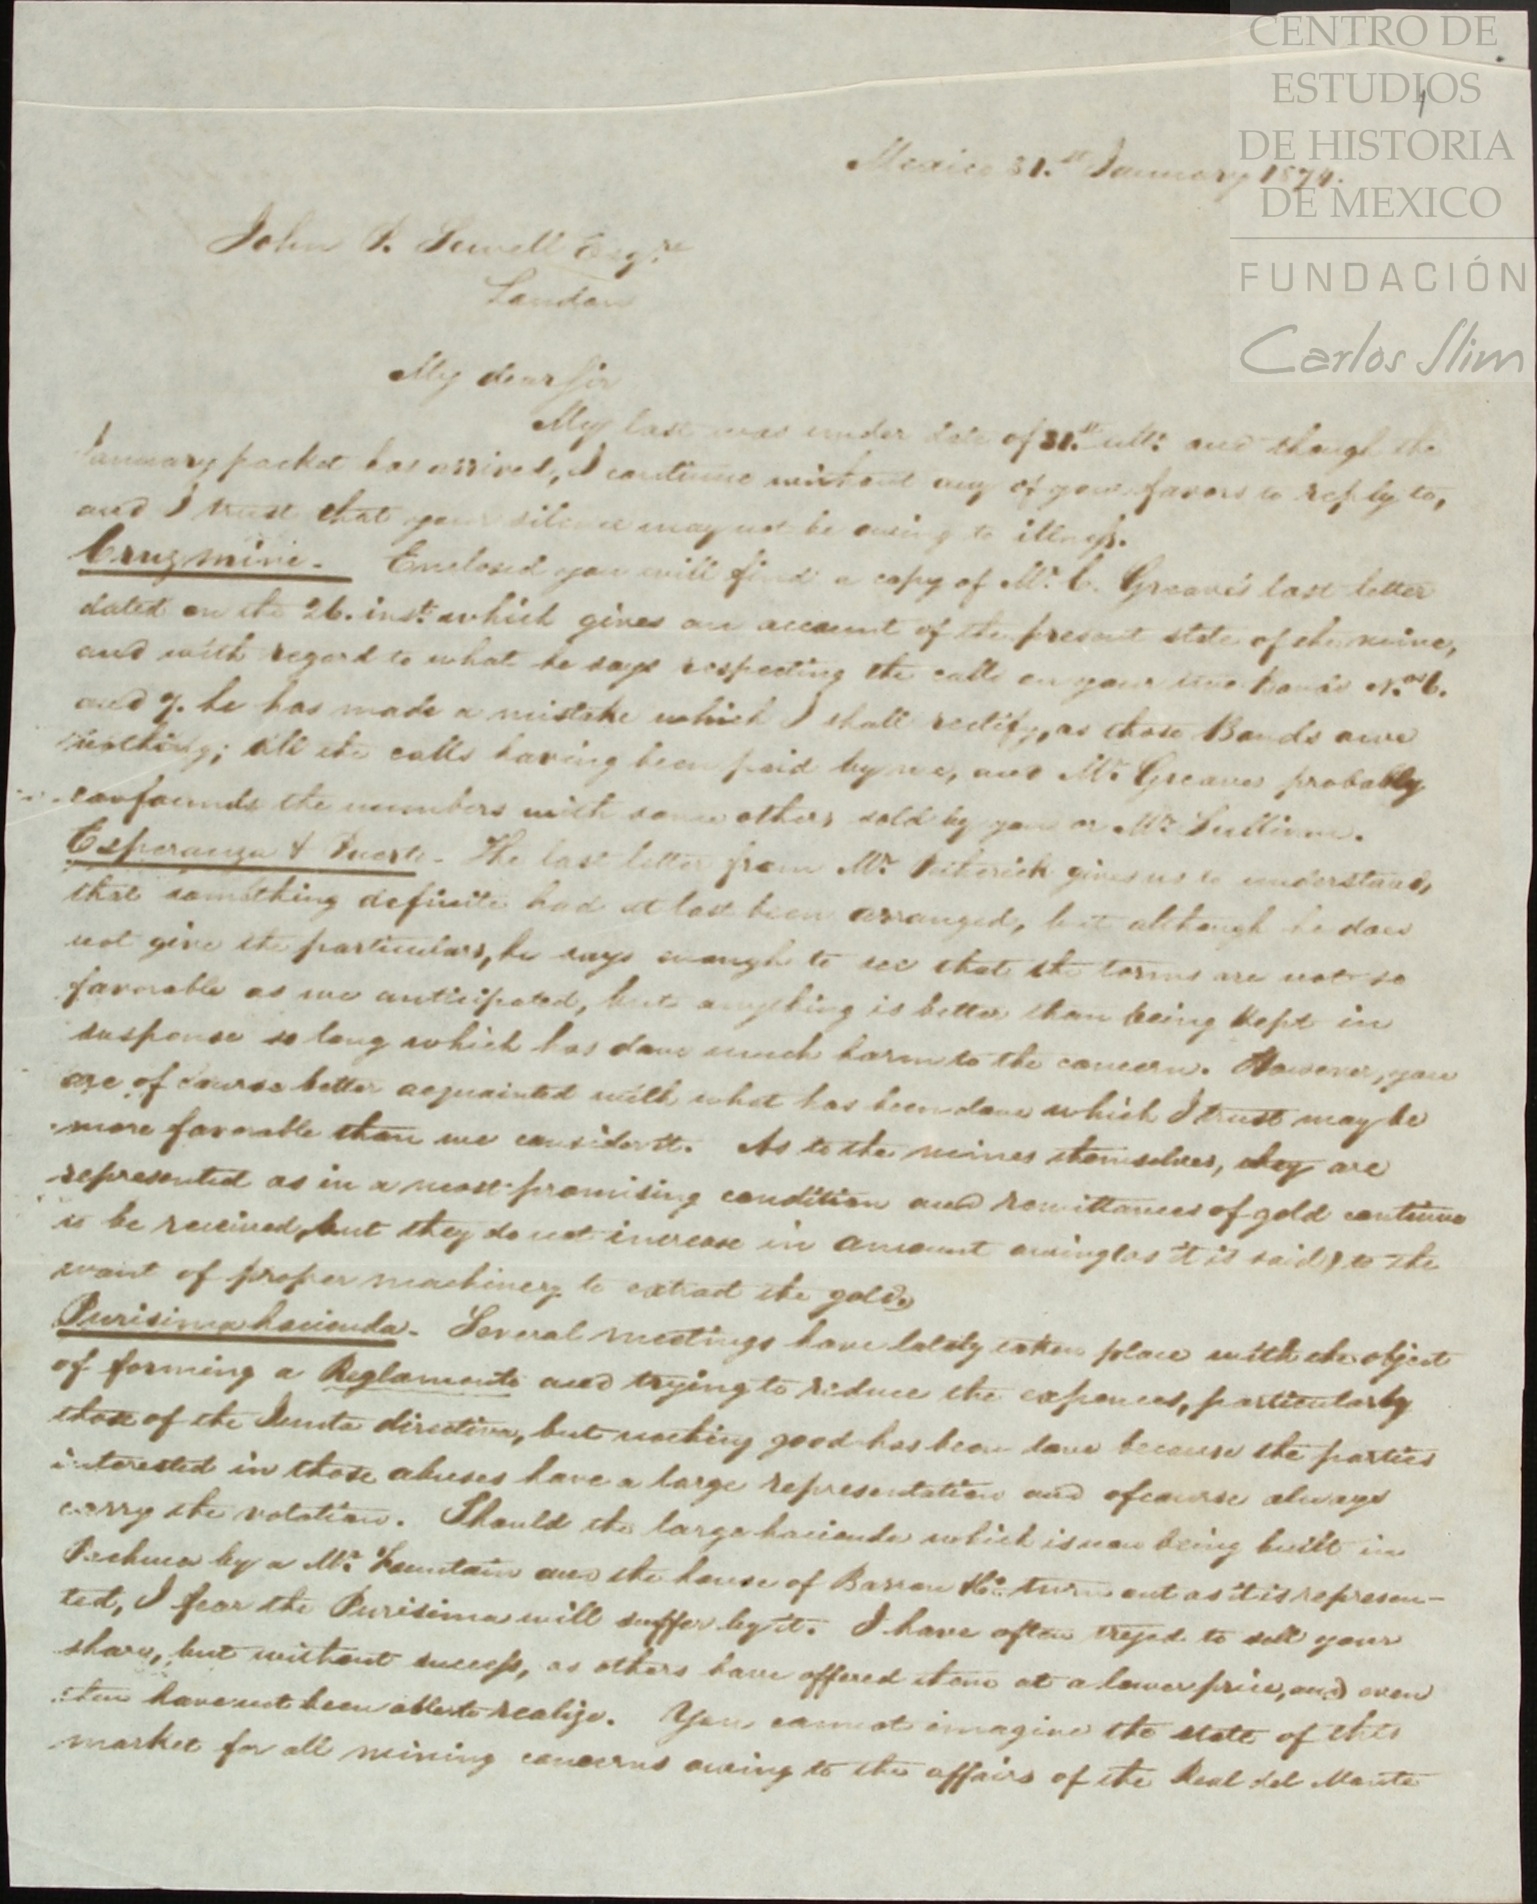 CENTRO DE
ESTUDIOS
DE HISTORIA
DE MEXICO
FUNDACIÓN
Carlos Slim
Mexico 31.st January 1874.
John P. Sewell Esq.re
London
My dear Sir
My last was under date of 31.st ult.o and though the
January packet has arrived, I continue without any of your favors to reply to,
and I trust that your silence may not be owing to illness.
Cruz mine. Enclosed you will find a copy of Mr. C. Greaves last letter
dated on the 26. inst. which gives an account of the present state of the mine,
and with regard to what he says respecting the calls on your two bonds N.os 6.
and 7. he has made a mistake which I shall rectify, as those Bonds owe
nothing; all the calls having been paid by me, and Mr. Greaves probably
confounds the numbers with some others sold by you or Mr. Sullivan.
Esperanza & Puerto. The last letter from Mr. gives us to understand,
that something definite had at last been arranged, but although he does
not give the particulars, he says enough to see that the terms are not so
favorable as we anticipated, but anything is better than being kept in
suspense so long which has done much harm to the concern. However, you
are of course better acquainted with what has been done which I trust may be
more favorable than we consider it. As to the mines themselves, they are
represented as in a most promising condition and remittances of gold continue
to be received, but they do not increase in amount owing (as it is said) to the
want of proper machinery to extract the gold.
Purisima hacienda. Several meetings have lately taken place with the object
of forming a Reglamento and trying to reduce the expences, particularly
those of the Junta directiva, but nothing good has been done because the parties
interested in those abuses have a large representation and of course always
carry the votation. Should the large hacienda which is now being built in
Pachuca by a Mr. Fountain and the house of Barron &Co. turn out as it is represen-
ted, I fear the Purisima will suffer by it. I have often tryed to sell your
share, but without success, as others have offered them at a lower price, and even
then have not been able to realize. You cannot imagine the state of this
market for all mining concerns owing to the affairs of the Real del Monte